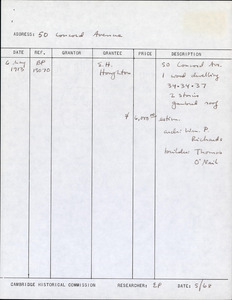 ADDRESS: 50 Concord Avenue
DATE REF. GRANTOR GRANTEE PRICE DESCRIPTION
6 May BP S.H. 50 Concord Ave.
1915 Houghton 1 wood dwelling
34·34·37
2 stories
gambrel roof
$ estim
archi: Wm. P.
Richards
builder Thomas
O'Neil
CAMBRIDGE HISTORICAL COMMISSION RESEARCHER: DATE: 5/60